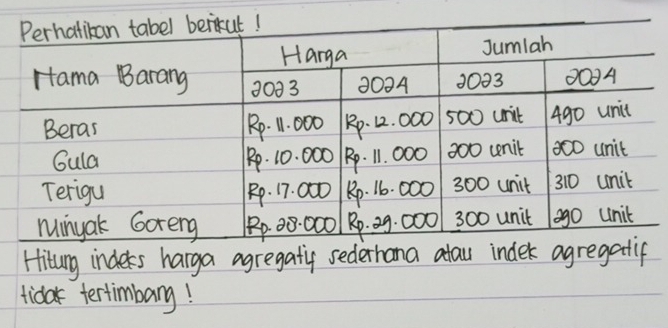 Perhatikan tabel berikut !
Nama Barang Harga Jumlah
2023 2024 2023 2024
Beras Rp. 11.000 Rp. 12.000 500 unit 490 unit
Gula Rp. 10.000 Rp. 11.000 200 unit 200 unit
Terigu Rp. 17.000 Rp. 16.000 300 unit 310 unit
Minyak Goreng Rp. 28.000 Rp. 29.000 300 unit 290 unit
Hitung indeks harga agregatif sederhana atau indek agregatif
tidak tertimbang !